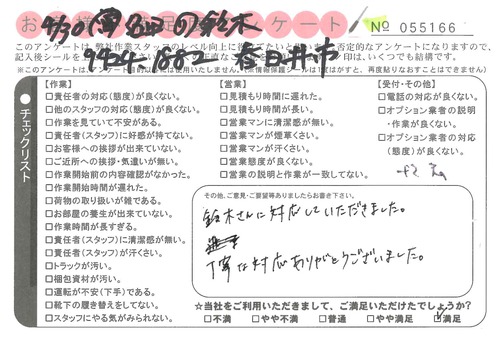 お 様 足 ンケート
4/30 の鈴木
№ 055166
9424-1882 春日井市
このアンケートは、弊社作業スタッフのレベル向上に
否定的なアンケートになりますので、
記入後シールを
印は、いくつでも結構です。
チェックリスト
【作業】
□責任者の対応(態度)が良くない。
□他のスタッフの対応(態度)が良くない。
□作業を見ていて不安がある。
□責任者(スタッフ)に好感が持てない。
□お客様への挨拶が出来ていない。
□ご近所への挨拶・気遣いが無い。
□作業開始前の内容確認がなかった。
□作業開始時間が遅れた。
□荷物の取り扱いが雑である。
□お部屋の養生が出来ていない。
□作業時間が長すぎる。
□責任者(スタッフ)に清潔感が無い。
□責任者(スタッフ)が汗くさい。
□トラックが汚い。
□梱包資材が汚い。
□運転が不安(下手)である。
□靴下の履き替えをしてない。
□スタッフにやる気がみられない。
【営業】
□見積もり時間に遅れた。
□見積もり時間が長い。
□営業マンに清潔感が無い。
□営業マンが煙草くさい。
□営業マンが汗くさい。
□営業態度が良くない。
□営業の説明と作業が一致してない。
【受付・その他】
□電話の対応が良くない。
□オプション業者の説明
・作業が良くない。
□オプション業者の対応
(態度)が良くない。
その他、ご意見・ご要望等ありましたらお書き下さい。
鈴木さんに対応していただきました。
丁寧な対応ありがとうございました。
☆当社をご利用いただきまして、ご満足いただけたでしょうか?
□不満 □やや不満 □普通 □やや満足 ☑満足